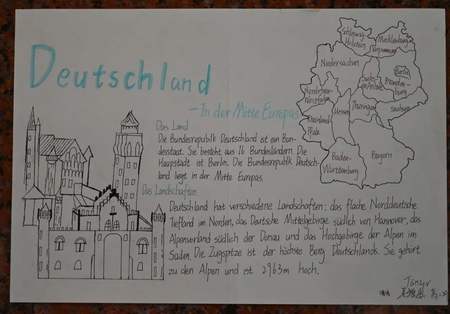 Deutschland
- In der Mitte Europas
Das Land
Die Bundesrepublik Deutschland ist ein Bun-
desstaat. Sie besteht aus 16 Bundesländern. Die
Hauptstadt ist Berlin. Die Bundesrepublik Deutsch-
land liegt in der Mitte Europas.
Die Landschaften
Deutschland hat verschiedene Landschaften: das flache Norddeutsche
Tiefland im Norden, das Deutsche Mittelgebirge südlich von Hannover, das
Alpenvorland südlich der Donau und das Hochgebirge der Alpen im
Süden. Die Zugspitze ist der höchste Berg Deutschlands. Sie gehört
zu den Alpen und ist 2963m hoch.
Schleswig-
Holstein
Mecklenburg-
Niedersachsen
Berlin
Nordrhein-
Westfalen
Hessen
Thüringen
Sachsen
Rheinland
Pfalz
Baden-
Württemberg
Bayern